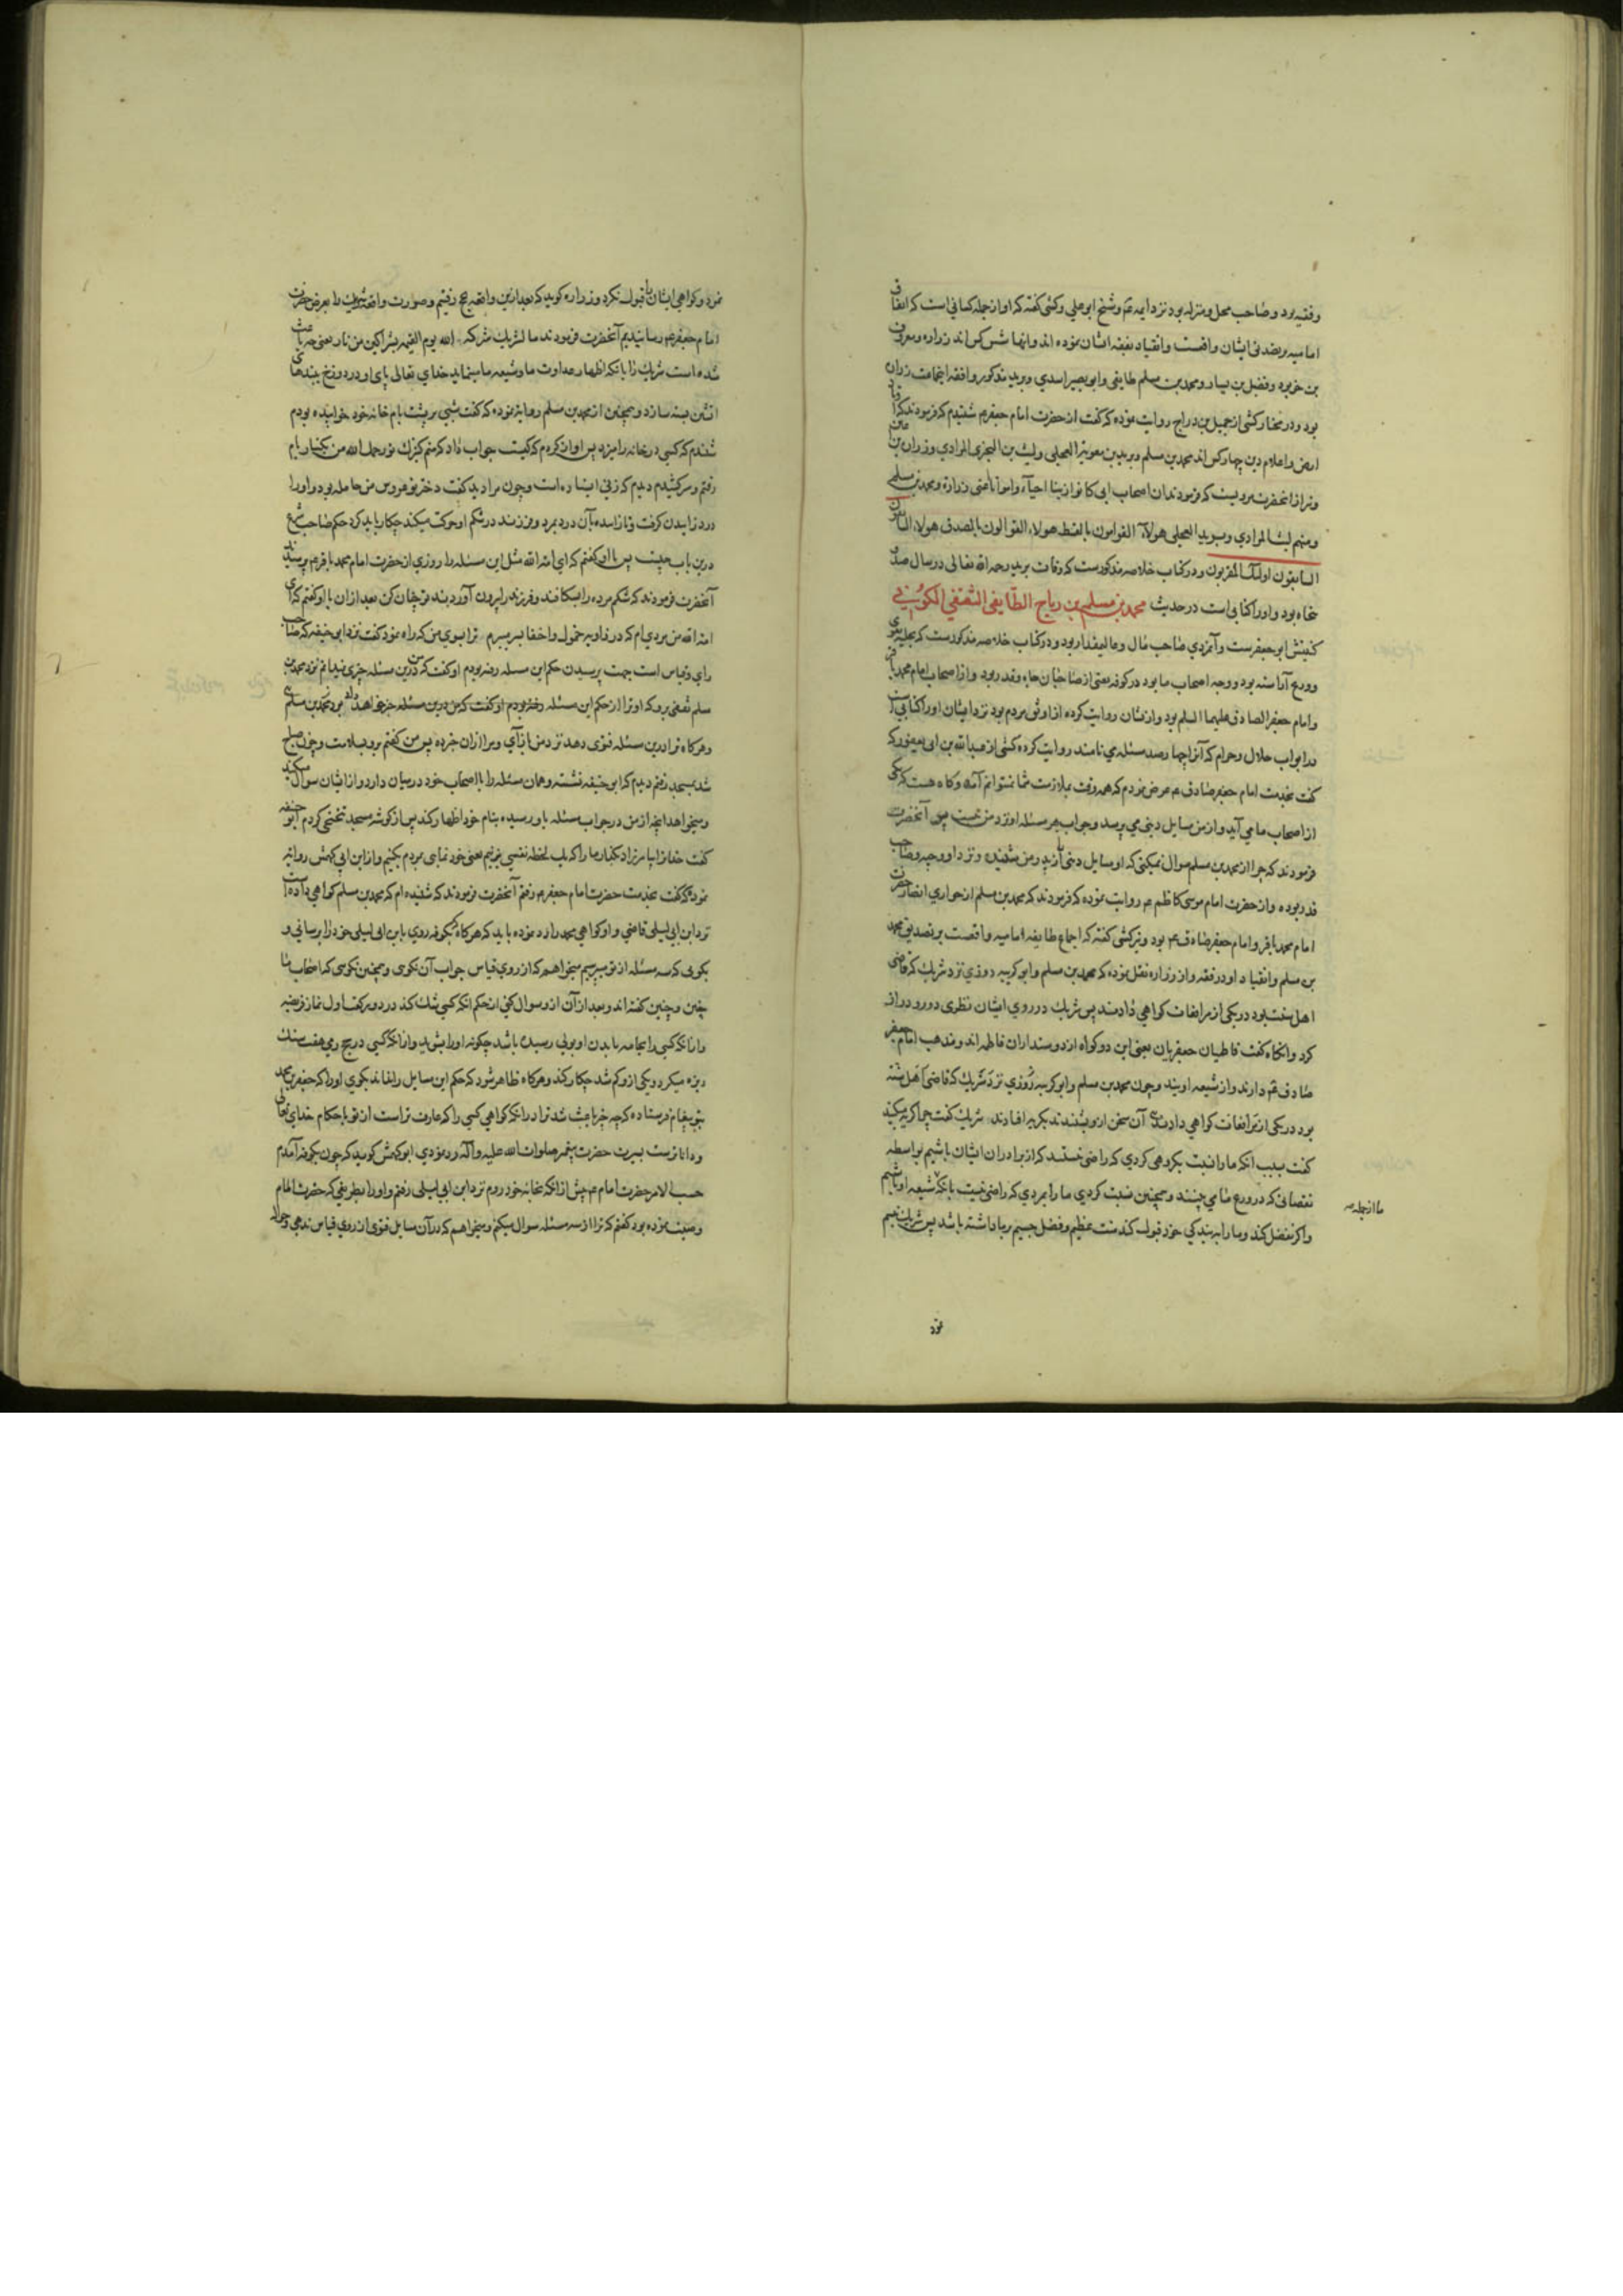 وفقیه بود و صاحب محل و منزله بود نزد ایمه ع م و شیخ ابو علی و کشی گفته که او از جمله کسانی است که اتفاق
امامیه بر تصدیق ایشان واقعست و انقیاد بفقه ایشان نموده اند و آنها شش کس اند زراره و معروف
بن خربود و فضیل بن یسار و محمد بن مسلم طایفی و ابو بصیر اسدی و برید مذکور و افقه این جماعت زراره
بود و در مختار کشی از جمیل بن دراج روایت نموده که گفت از حضرت امام جعفر ع م شنیدم که فرمودند که اوتاد
ارض و اعلام دین چهار کس اند محمد بن مسلم و برید بن معویة العجلی و لیث بن البختری المرادی و زرارة بن اعین
و نیز از آنحضرت مرویست که فرمودند ان اصحاب ابی کانوا زینا احیاء و امواتا اعنی زرارة و محمد بن مسلم
و منهم لیث المرادی و برید العجلی هولاء القوامون بالقسط هولاء القوالون بالصدق هولاء السابقون
السابقون اولئک المقربون و در کتاب خلاصه مذکورست که وفات برید رحمه الله تعالی در سال صد و
پنجاه بود و او را کتابی است در حدیث محمد بن مسلم بن ریاح الطایفی الثقفی الکوفی
کنیتش ابو جعفرست و آنمردی صاحب مال و مالیمقدار بود و در کتاب خلاصه مذکورست که بحلیه تقوی
و ورع آراسته بود و وجه اصحاب ما بود در کوفه یعنی از صاحبان جاه و قدر بود و از اصحاب امام محمد باقر
و امام جعفر الصادق علیهما السلم بود و از ایشان روایت کرده از اوثق مردم بود نزد ایشان او را کتابی است
در ابواب حلال و حرام که آنرا چهار صد مسئله می نامند روایت کرده کشی از عبد الله بن ابی یعفور که
گفت بخدمت امام جعفر صادق ع م عرض نمودم که همه وقت بملازمت شما نمیتوانم آمد و گاه هست که یکی
از اصحاب ما می آید و از من مسایل دینی می پرسد و جواب هر مسئله او نزد من نیست پس آنحضرت
فرمودند که چرا از محمد بن مسلم سوال نمیکنی که او مسایل دینی از پدر من شنیده و نزد او وجیه و صاحب
قدر بوده و از حضرت امام موسی کاظم ع م روایت نموده که فرمودند که محمد بن مسلم از حواری حضرت
امام محمد باقر و امام جعفر صادق ع م بود و نیز کشی گفته که اجماع طایفه امامیه واقعست بر تصدیق محمد
بن مسلم و انقیاد او در فقه و از زراره نقل نموده که محمد بن مسلم و ابو کریبه روزی نزد شریک که قاضی
اهل سنت بود در یکی از مرافعات گواهی دادند پس شریک در روی ایشان نظری دور و دراز
کرد و انگاه گفت فاطیان جعفریان یعنی این دو گواه از دوستداران فاطمه اند و مذهب امام جعفر
صادق ع م دارند و از شیعه اویند و چون محمد بن مسلم و ابو کریبه روزی نزد شریک که قاضی اهل سنه
بود در یکی از مرافعات گواهی دادند آن سخن ازو شنیدند بگریه افتادند شریک گفت چرا گریه میکنید
گفت بسبب آنکه ما را نسبت بگروهی کردی که راضی نیستند که از برادران ایشان باشیم بواسطه
نقصانی که در ورع ما می بینند و همچنین نسبت کردی ما را بمردی که راضی نیست بآنکه ما از جمله شیعه او باشیم
و اگر تفضل کند و ما را به بندگی خود قبول کند منت عظیم و فضل جسیم بر ما داشته باشد پس شریک تبسم
نمود
نمود و گواهی ایشان را قبول نکرد و زراره گوید که بعد ازین واقعه بحج رفتیم و صورت واقعه شریک را بعرض حضرت
امام جعفر ع م رسانیدیم آنحضرت فرمودند ما لشریک شرکه الله یوم القیمه بشراکین من نار یعنی چه باعث
شده است شریک را بانکه اظهار عداوت ما و شیعه ما مینماید خدای تعالی پای او در دوزخ ببندهای
آتشین بسته سازد و همچنین از محمد بن مسلم روایت نموده که گفت شبی بر پشت بام خانه خود خوابیده بودم
شنیدم که کسی در خانه را میزد پس آواز کردم که کیست جواب داد که منم کنیزک تو رحمک الله من بکنار بام
رفتم و سر کشیدم دیدم که زنی ایستاده است و چون مرا دید گفت دختر نو عروس من حامله بود و او را
درد زاییدن گرفت و نازاییده بآن درد بمرد و فرزند در شکم او حرکت میکند چکار باید کرد حکم صاحب شرع
درین باب چیست پس با او گفتم که ای امة الله مثل این مسئله را روزی از حضرت امام محمد باقر ع م پرسیدند
آنحضرت فرمودند که شکم مرده را بشکافند و فرزند را بیرون آوردند تو چنان کن بعد از آن با او گفتم که ای
امة الله من مردی ام که در زاویه خمول و اخفا بسر میبرم ترا بسوی من که راه نمود گفت نزد ابو حنیفه که صاحب
رای و قیاس است جهت پرسیدن حکم این مسئله رفته بودم او گفت که من درین مسئله چیزی نمیدانم نزد محمد بن
مسلم ثقفی برو که او ترا از حکم این مسئله خبر خواهد داد
و هر گاه ترا درین مسئله فتوی دهد نزد من باز آی و مرا از آن خبر ده پس من گفتم برو بسلامت و چون صباح
شد بمسجد رفتم دیدم که ابو حنیفه نشسته و همان مسئله را با اصحاب خود در میان دارد و از ایشان سوال میکند
و میخواهد آنچه از من در جواب مسئله باو رسیده بنام خود اظهار کند پس از گوشه مسجد تنحنحی کردم ابو حنیفه
گفت خدا ترا بیامرزاد بگذار ما را که یک لحظه نفسی بزنیم و از ابن ابی کهمش روایت
نموده که گفت بخدمت حضرت امام جعفر ع م رفتم آنحضرت فرمودند که شنیده ام که محمد بن مسلم گواهی داده است
نزد ابن ابی لیلی قاضی و او گواهی محمد را رد نموده باید که هر گاه بکوفه روی با ابن ابی لیلی خود را برسانی و
بگویی که سه مسئله از تو میپرسیم میخواهم که از روی قیاس جواب آن نگوی و همچنین نگویی که اصحاب ما
چنین و چنین گفته اند و بعد از آن ازو سوال کنی از حکم آنکه کسی شک کند در دو رکعت اول نماز فریضه
و از آنکه کسی را بجامه یا بدن او بولی رسیده باشد چگونه او را بشوید و از آنکه کسی در حج رمی هفت سنگ
ریزه میکرد و یکی ازو کم شد چکار کند و هر گاه ظاهر شود که حکم این مسایل را نداند بگوی او را که جعفر بن محمد
بتو پیغام فرستاده که چه چیز باعث شد ترا در آنکه گواهی کسی را که عارف تر است از تو باحکام خدای تعالی
و داناترست بسیرت حضرت پیغمبر صلوات الله علیه و آله رد نمودی ابو کهمش گوید که چون بکوفه آمدم
حسب الامر حضرت امام ع م پیش از آنکه بخانه خود روم نزد ابن ابی لیلی رفتم و او را بطریقی که حضرت امام
وصیت نموده بود گفتم که ترا از سه مسئله سوال میکنم و میخواهم که در آن مسایل فتوی از روی قیاس ندهی و حواله